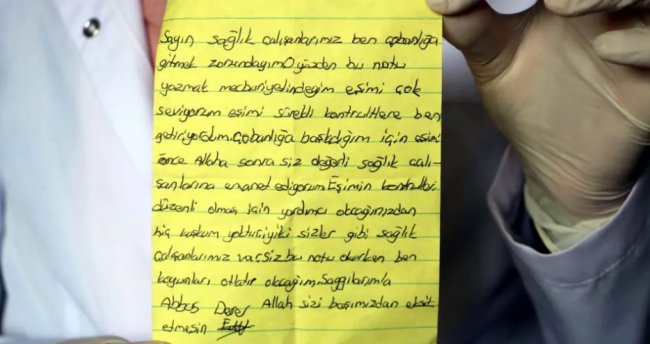 Sayın sağlık çalışanlarımız ben çobanlığa
gitmek zorundayım O yüzden bu notu
yazmak mecburiyetindeyim eşimi çok
seviyorum eşimi sürekli kontrollere ben
getiriyordum. Çobanlığa başladığım için eşimi
önce Allaha sonra siz değerli sağlık çalı-
şanlarına emanet ediyorum Eşimin kontrolleri
düzenli olması için yardımcı olacağınızdan
hiç kuşkum yoktur iyiki sizler gibi sağlık
çalışanlarımız var siz bu notu okurken ben
koyunları otlatır olacağım. Saygılarımla
Abbas Allah sizi başımızdan eksik
etmesin